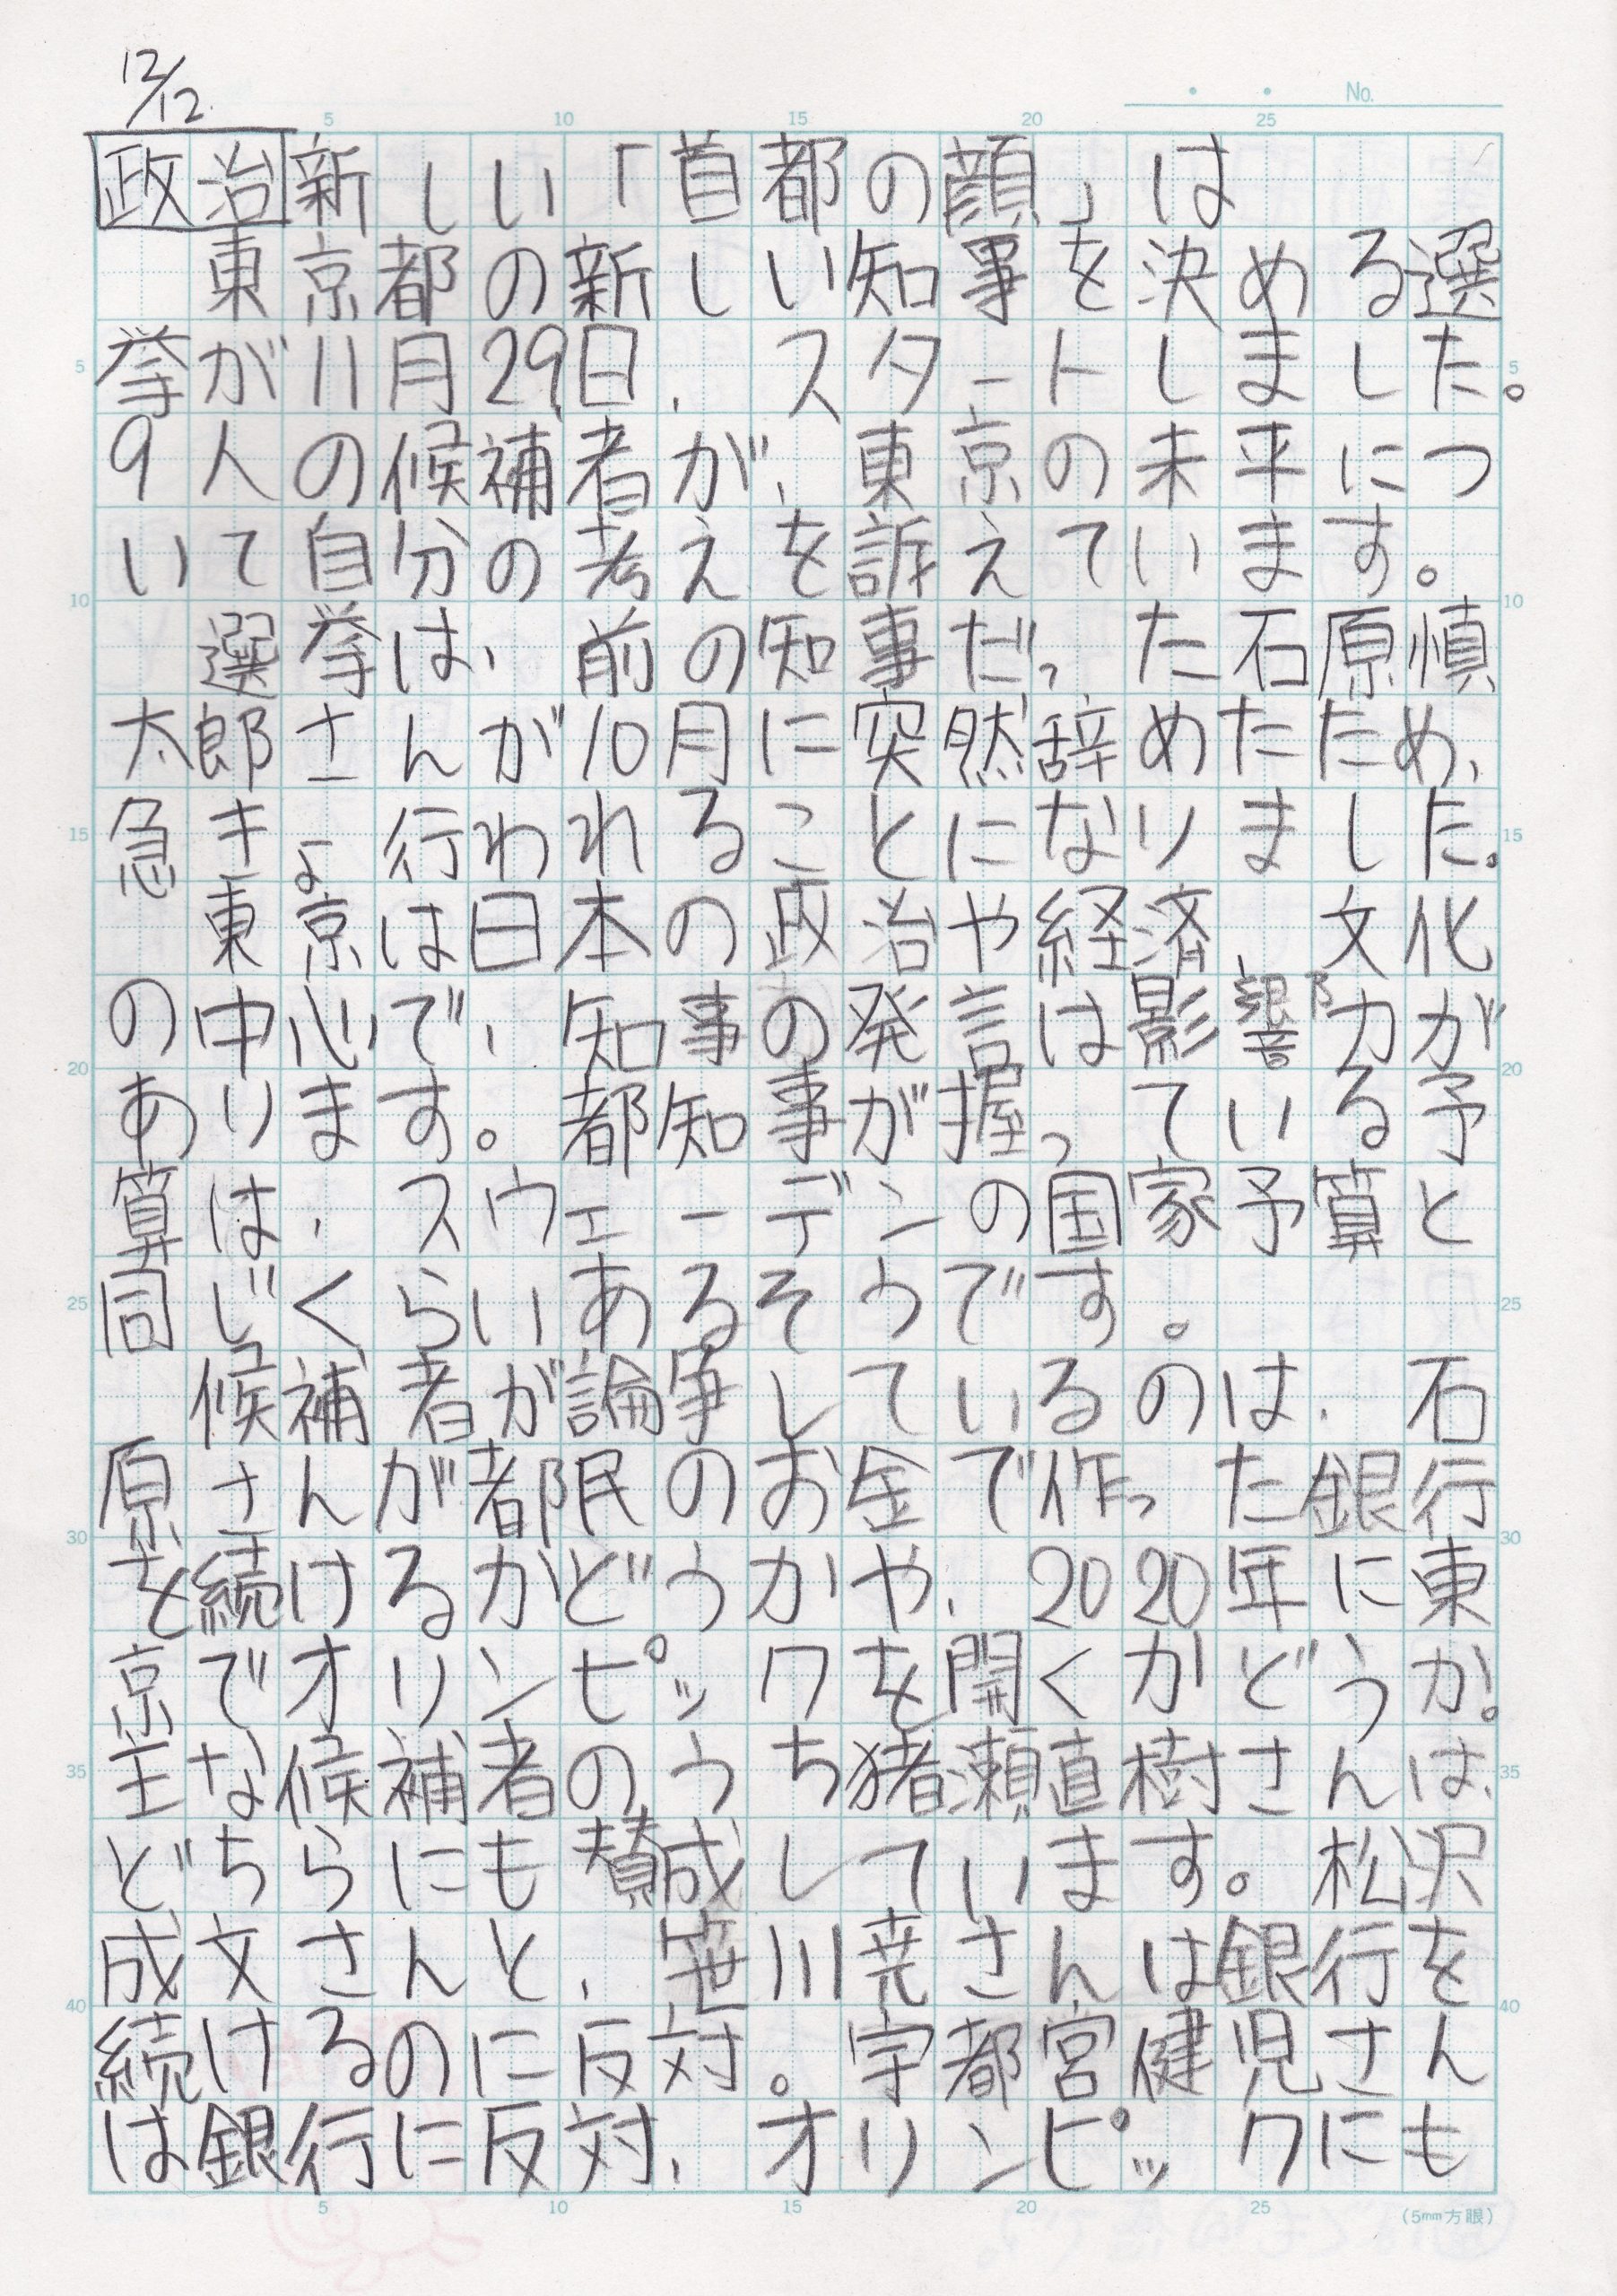 12/12
No.
5 10 15 20 25
政治新しい「首都の顔」は
東京都の新しい知事を決める選
挙が11月29日、スタートしました。
9人の候補者が、東京の未平につ
いて自分の考えを訴えています。
選挙は、前の知事だった石原慎
太郎さんが10月に突然辞めたため、
急きょ行われることになりました。
東京は日本の政治や経済、文化
の中心で、知事の発言は影響力が
あります。都知事が握っている予
算は、スウェーデンの国家予算と
同じくらいあるそうです。
候補者が論争しているのは、石
原さんが都民のお金で作った銀行
を続けるかどうかや、2020年に東
京でオリンピックを開くかどうか。
主な候補者のうち猪瀬直樹さんは、
どちらにも賛成しています。松沢
成文さんと、笹川尭さんは銀行を
続けるのに反対。宇都宮健児さん
は銀行に反対、オリンピックにも
5 10 15 20 25
(5mm方眼)